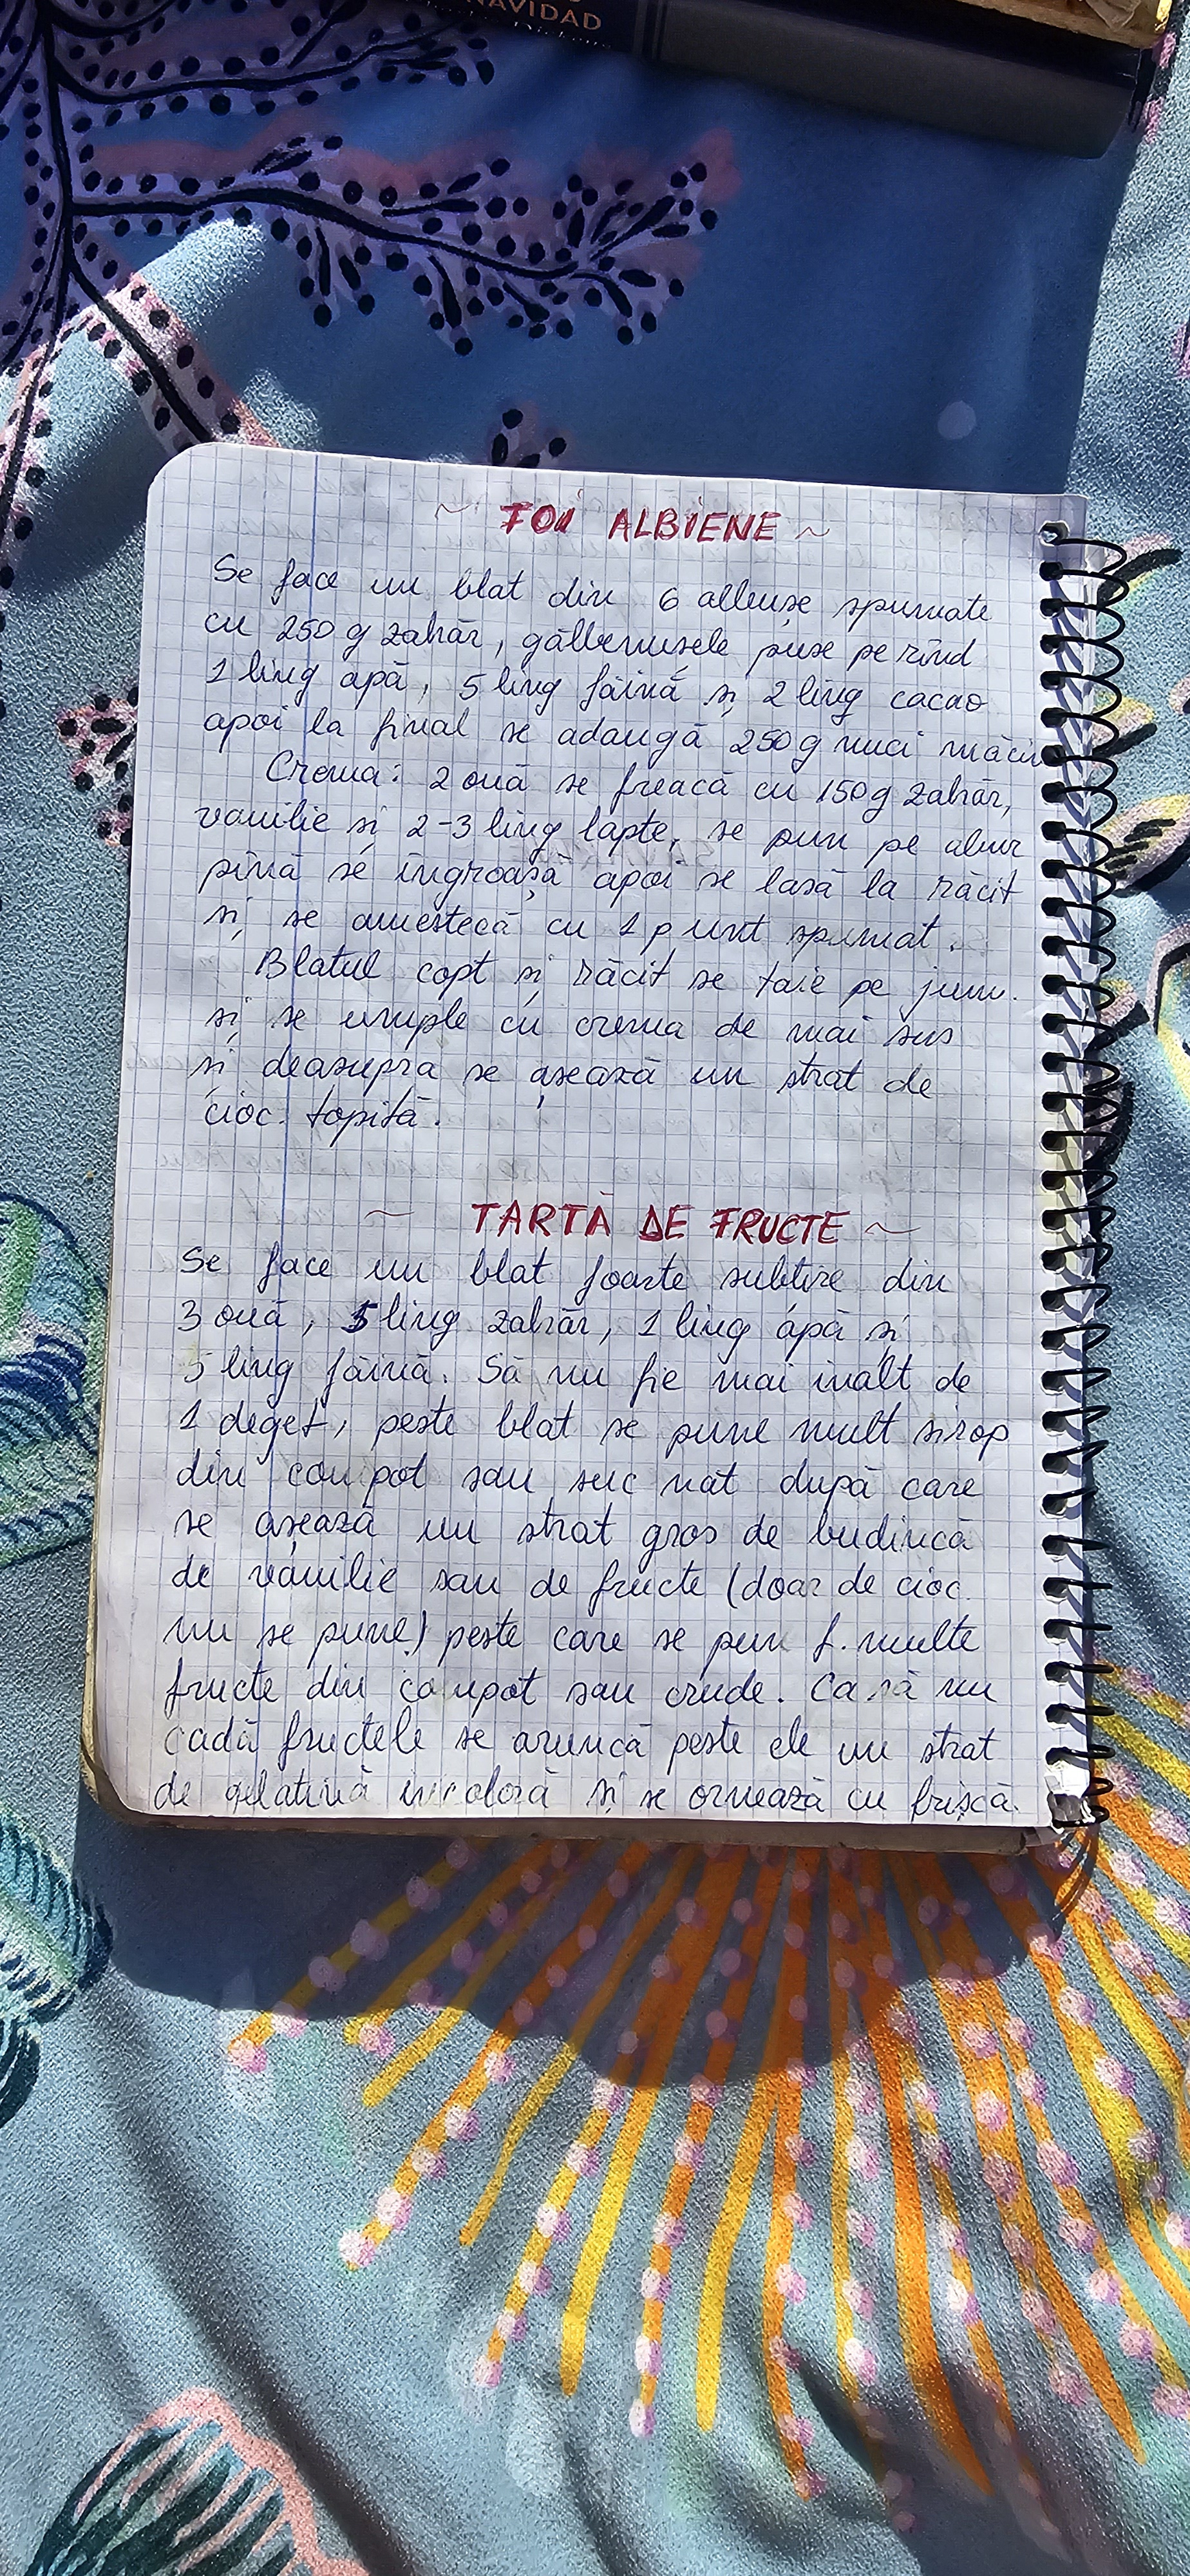 NAVIDAD
~ FOI ALBIENE ~
Se face un blat din 6 albușe spumate
cu 250 g zahăr, gălbenușele puse pe rînd
1 ling apă, 5 ling făină și 2 ling cacao
apoi la final se adaugă 250 g nuci măcin
Crema: 2 ouă se freacă cu 150 g zahăr,
vanilie și 2-3 ling lapte, se pun pe abur
pînă se îngroașă apoi se lasă la răcit
și se amestecă cu 1 p unt spumat.
Blatul copt și răcit se taie pe jum.
și se umple cu crema de mai sus
și deasupra se așează un strat de
cioc. topită.
~ TARTĂ DE FRUCTE ~
Se face un blat foarte subtire din
3 ouă, 5 ling zahăr, 1 ling apă și
5 ling făină. Să nu fie mai inalt de
1 deget, peste blat se pune mult sirop
din compot sau suc nat după care
se așează un strat gros de budincă
de vanilie sau de fructe (doar de cioc.
nu se pune) peste care se pun f. multe
fructe din compot sau crude. Ca să nu
cadă fructele se aruncă peste ele un strat
de gelatină incoloră și se ornează cu frișcă.